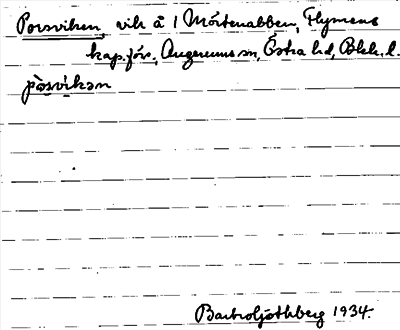 Porsviken, vik å 1 Mörtenabben, Flymens
kap.förs., Augerums sn, Östra hd, Blek. l.
pòrsvikən
1934.